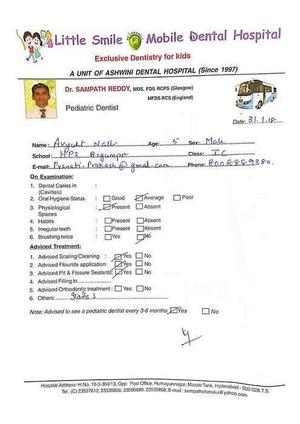 Little Smile Mobile Dental Hospital
Exclusive Dentistry for kids
A UNIT OF ASHWINI DENTAL HOSPITAL (Since 1997)
Dr. SAMPATH REDDY, MDS, FDS RCPS (Glasgow)
MFDS RCS (England)
Pediatric Dentist
Date: 31.1.18
Name: Age: 5 Sex: Male
School: HPS Begumpet Class: IC
E-mail: Phone:
On Examination:
1. Dental Caries in
(Cavities)
2. Oral Hygiene Status: Good Average Poor
3. Physiological Present Absent
Spaces
4. Habits Present Absent
5. Irregular teeth Present Absent
6. Brushing twice Yes No
Adviced Treatment:
1. Advised Scaling/Cleaning : Yes No
2. Advised Flouride application: Yes No
3. Advised Pit & Fissure Sealants: Yes No
4. Advised Filling in
5. Advised Orthodontic treatment: Yes No
6. Others:
Note: Advised to see a pediatric dentist every 3-6 months Yes No
Hospital Address: H.No. 10-3-304/13, Opp. Post Office, Humayunnagar, Masab Tank, Hyderabad - 500 028.T.S.